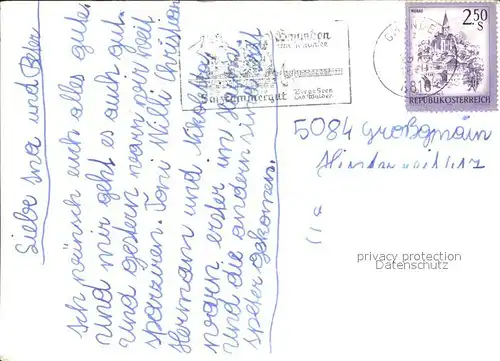 Liebe Ina und Peter
Ich wünsch euch alles gute.
Und mir geht es auch gut.
Und gestern warn wir weit
spazieren. Toni Willi Christian
Hermann und Nikolster
warn erster im
und die andern sind
speter gekomen.
Gmunden
am Traunsee
Salzkammergut
Berge Seen
und Wälder
MURAU
2.50
S
REPUBLIK ÖSTERREICH
GMUNDEN
4810
5084 Großgmain
privacy protection
Datenschutz